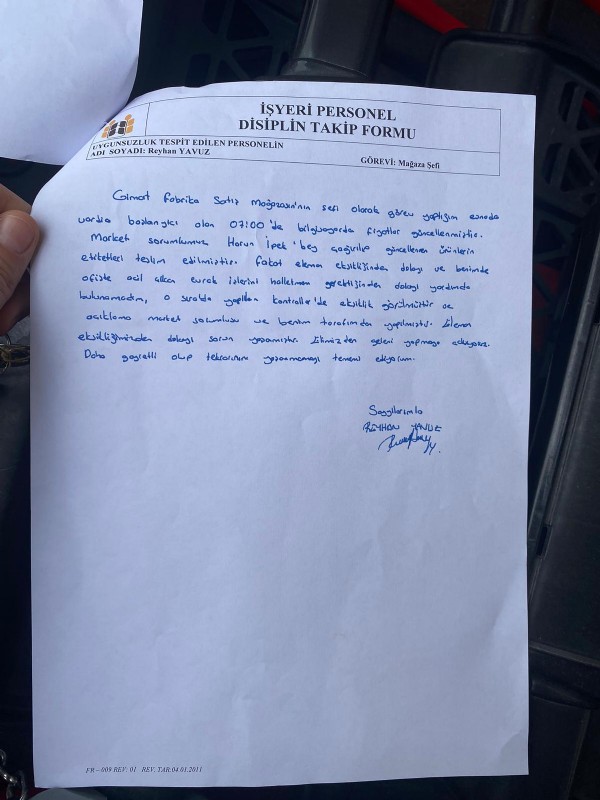 İŞYERİ PERSONEL
DİSİPLİN TAKİP FORMU
UYGUNSUZLUK TESPİT EDİLEN PERSONELİN
ADI SOYADI: Reyhan YAVUZ
GÖREVİ: Mağaza Şefi
Gimat Fabrika Satış Mağazasın'nın şefi olarak görev yaptığım esnada
vardia başlangıcı olan 07:00'de bilgisayarda fiyatlar güncellenmiştir.
Market sorumlumuz Harun İpek'i bey çağırılıp güncellenen ürünlerin
etiketleri teslim edilmiştir. Fakat eleman eksikliğinden dolayı ve benimde
ofiste acil çıkan evrak işlerini halletmem gerektiğinden dolayı yardımda
bulunamadım, o sırada yapılan kontroller'de eksiklik görülmüştür ve
açıklama market sorumlusu ve benim tarafımdan yapılmıştır. Eleman
eksikliğimizden dolayı sorun yaşanmıştır. Elimizden geleni yapmaya çalışıyoruz.
Daha gayretli olup tekrarının yaşanmamayı temeni ediyorum.
Saygılarımla
REYHAN
FR – 009 REV: 01 REV. TAR.04.01.2011